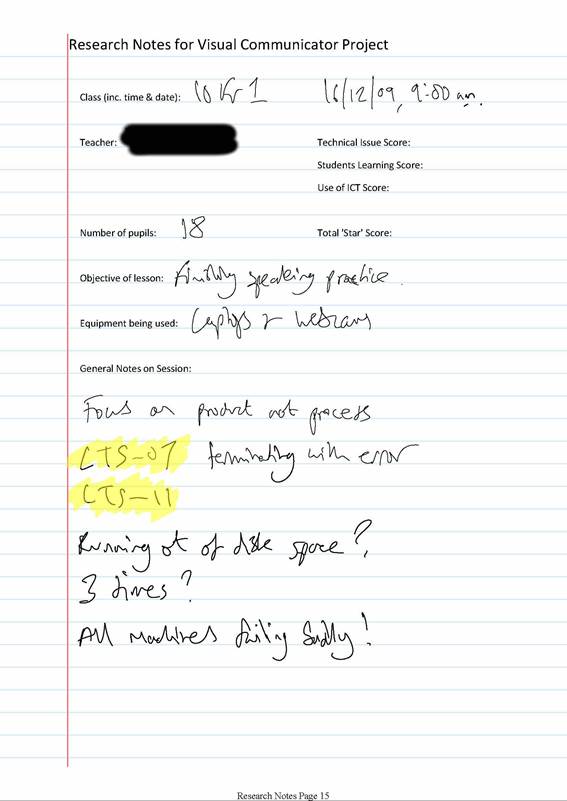 Research Notes for Visual Communicator Project
Class (inc. time & date): 10 Kr 1 16/12/09, 9:00 am.
Teacher: Technical Issue Score:
Students Learning Score:
Use of ICT Score:
Number of pupils: 18 Total 'Star' Score:
Objective of lesson: speaking practice.
Equipment being used: Laptops + Webcams
General Notes on Session:
Focus on product not process
LTS-07 terminating with error
LTS-11
Running ot of disk space?
3 times?
All Machines failing Sadly!
Research Notes Page 15